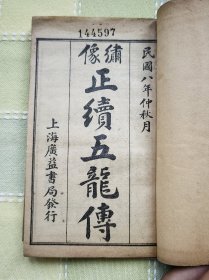 144597
民國八年仲秋月
繡像
正續五龍傳
上海廣益書局發行